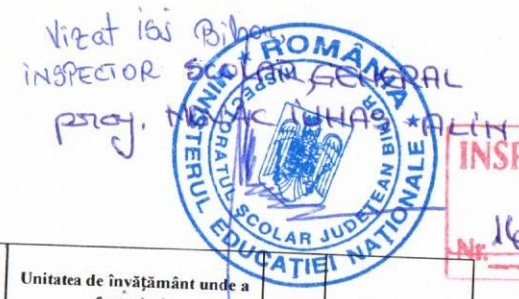 Vizat ISJ Bihor,
INSPECTOR ȘCOLAR GENERAL
prof. ALIN
ROMÂNIA
MINISTERUL EDUCAȚIEI NAȚIONALE
INSPECTORATUL ȘCOLAR JUDEȚEAN BIHOR
INSP
Nr. 16
Unitatea de învățământ unde a